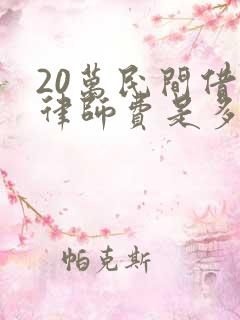 20萬民間借
律師費是多
帕克斯